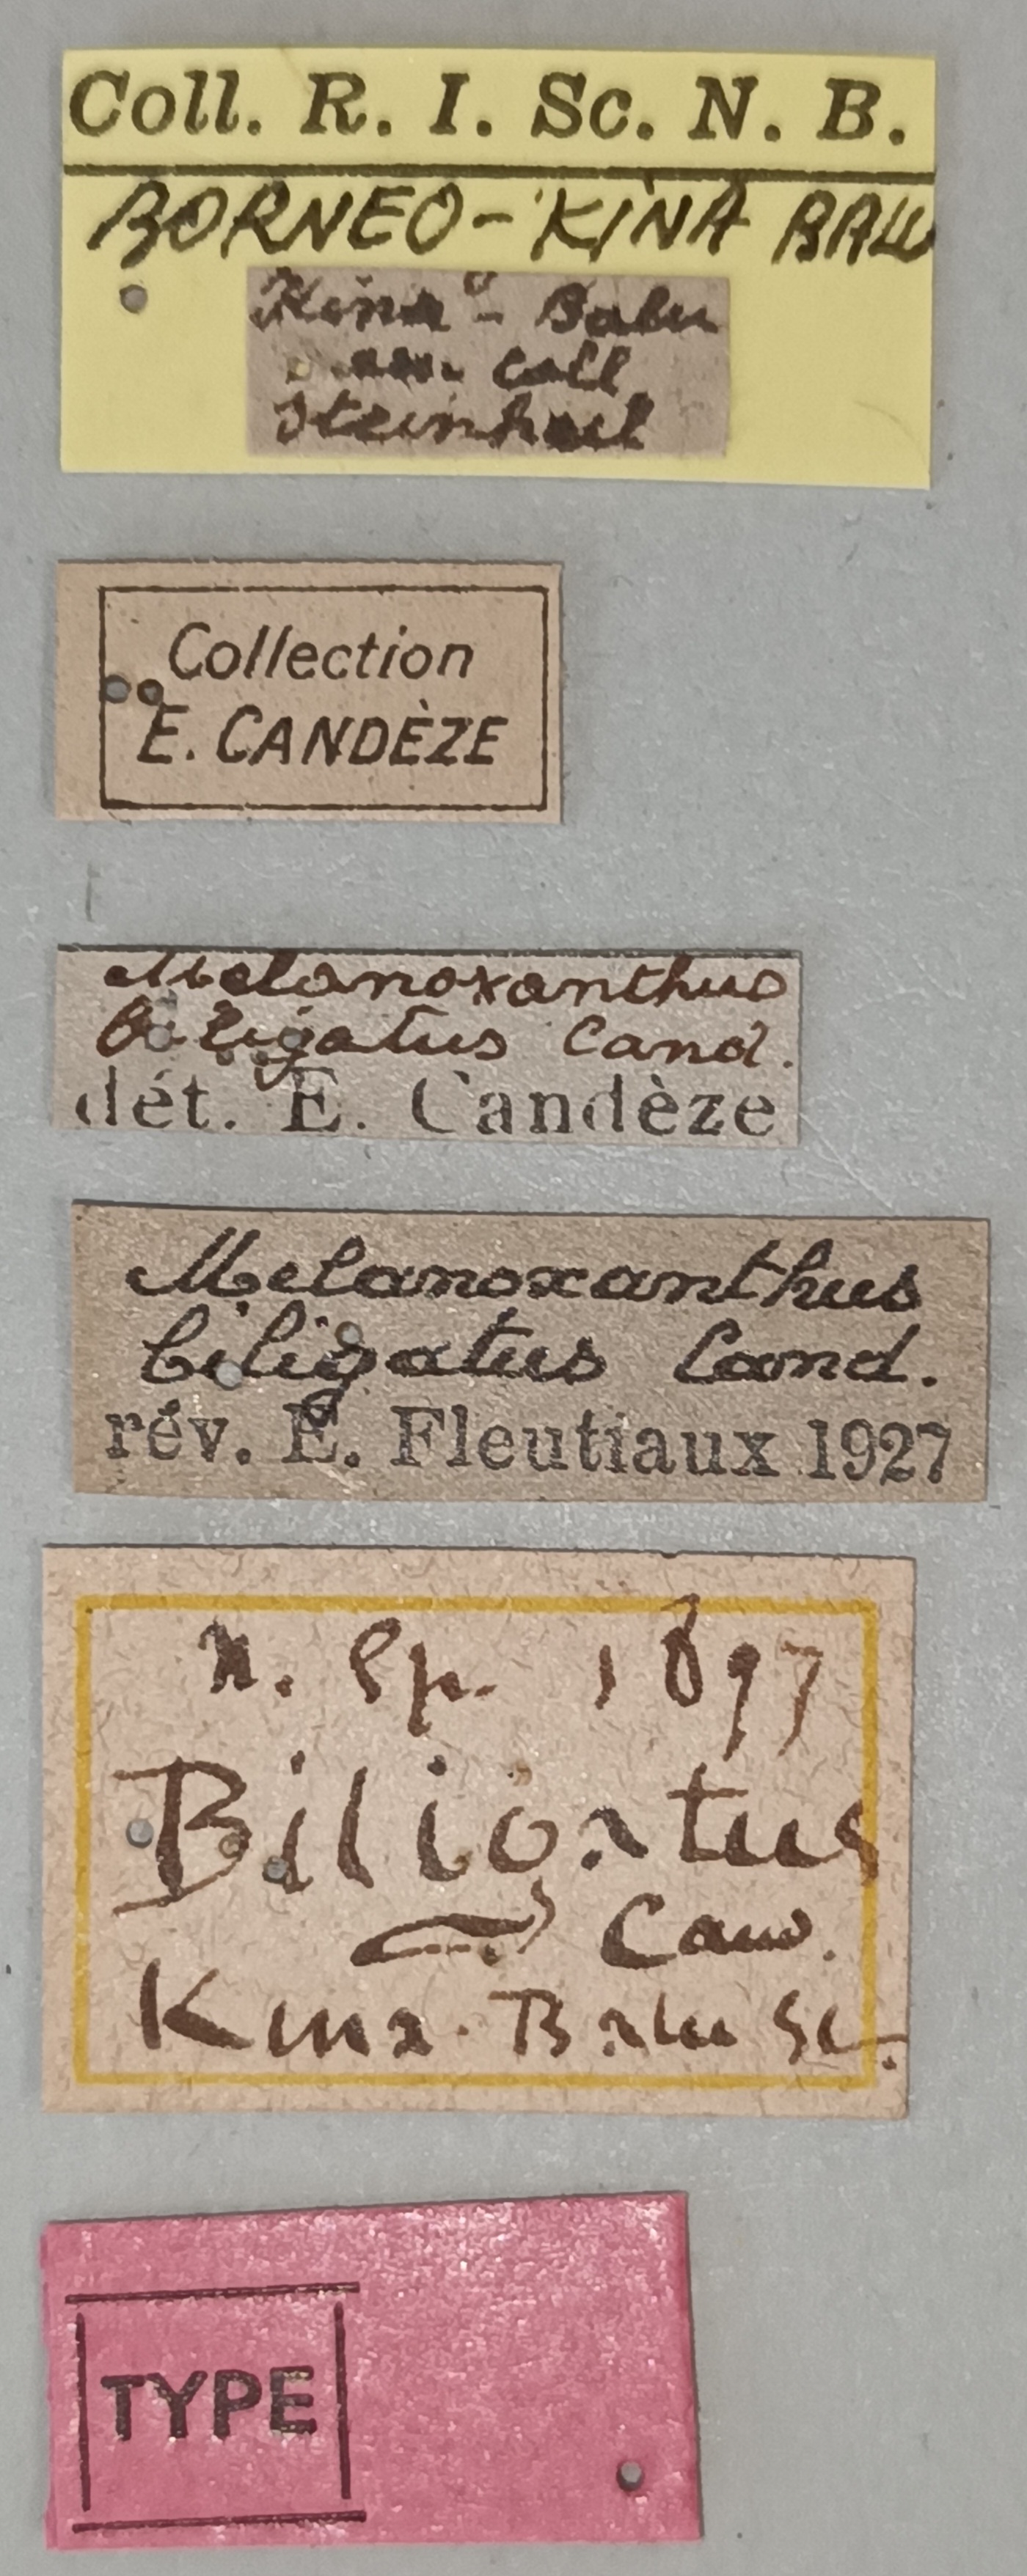 Coll. R. I. Sc. N. B.
BORNEO - KINA BALU
Kina - Balu
coll
Steinheil
Collection
E. CANDÈZE
Melanoxanthus
biligatus Cand.
dét. E. Candèze
Melanoxanthus
biligatus Cand.
rév. E. Fleutiaux 1927
n. sp. 1897
Biligatus
Kina-Balu
TYPE